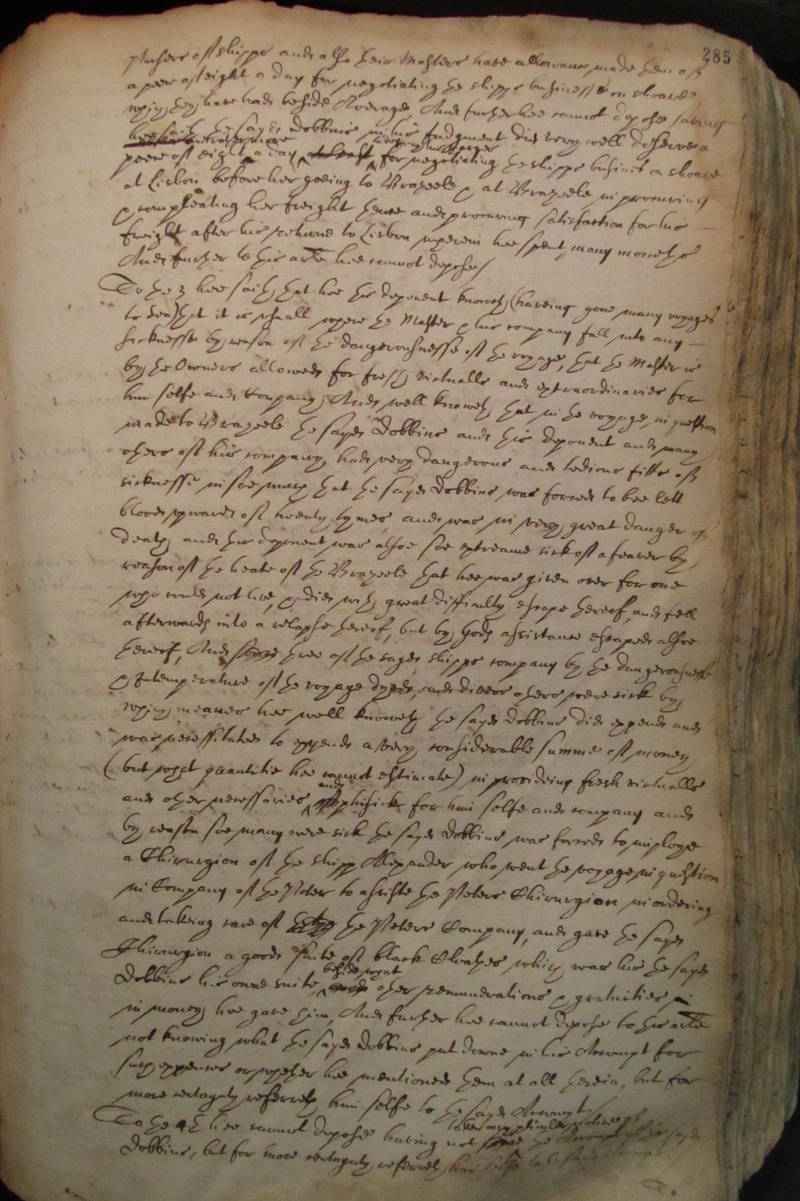 285
Pursers of shipps and also their Masters have allowance made them of
a peece of eight a day for negotiating the shipps businesse on shoare
which they have had beside Averages And further hee cannot depose saving
hee saith the sayd Dobbins in his Judgment did very well deserve a
peece of eight a day for negotiating the shipps business on shoare
at Lisbon before her goeing to Brazeele & at Brazeele in procuring
& compleating her freight home and procuring satisfaction for his
freight after his returne to Lisbon wherein hee spent many moneths
And further to this arte hee cannot depose/
To the 3 hee saith that hee this deponent knoweth (haveing gone many voyages
to sea) that it is usuall where the Master & his company fall into any
sicknesse by reason of the dangerousnesse of the voyage, that the Master is
by the Owners allowed for fresh victualls and extraordinaries for
him selfe and Company, And well knoweth that in the voyage in question
made to Brazeele the sayd Dobbins and this deponent and many
others of his company had very dangerous and tedious fitts of
sicknesse in soe much that the sayd Dobbins was forced to bee lett
blood upwards of twenty tymes and was in very great danger of
death, and this deponent was alsoe soe extreame sick of a feaver by
reason of the heate of the Brazeele that hee was given over for one
who could not live, & did with great difficulty escape thereof, and fell
afterwards into a relapse thereof, but by Gods assistance escaped alsoe
thereof, And three of the sayd shipps company by the dangerousnesse
& Intemperature of the voyage dyed, and divers others were sick by
which meanes hee well knoweth the sayd Dobbins did expend and
was necessitated to expend a very considerable summe of money
(but what quantitie hee cannot estimate) in provideing fresh victualls
and other necessaries and phisick for him selfe and company and
by reason soe many were sick the sayd Dobbins was forced to imploye
a Chirurgion of the shipp Alexander who went the voyage in question
in Company of the Peter to assiste the Peters Chirurgion in ordering
and takeing care of the Peters Company, and gave the sayd
Chirurgion a good suite of black Cloathes which was his the sayd
Dobbins his owne suite, beside what other remunerations & gratuities
in money hee gave him, And further hee cannot depose to this arte
not knowing what the sayd Dobbins put downe in his Accompt for
such expenses or whether hee mentioned them at all therein, but for
more certaynty referreth him selfe to the sayd Accompt/
To the 4th hee cannot depose having not the Accompt of the sayd
Dobbins, but for more certaynty referreth him selfe to the sayd Accompt
To